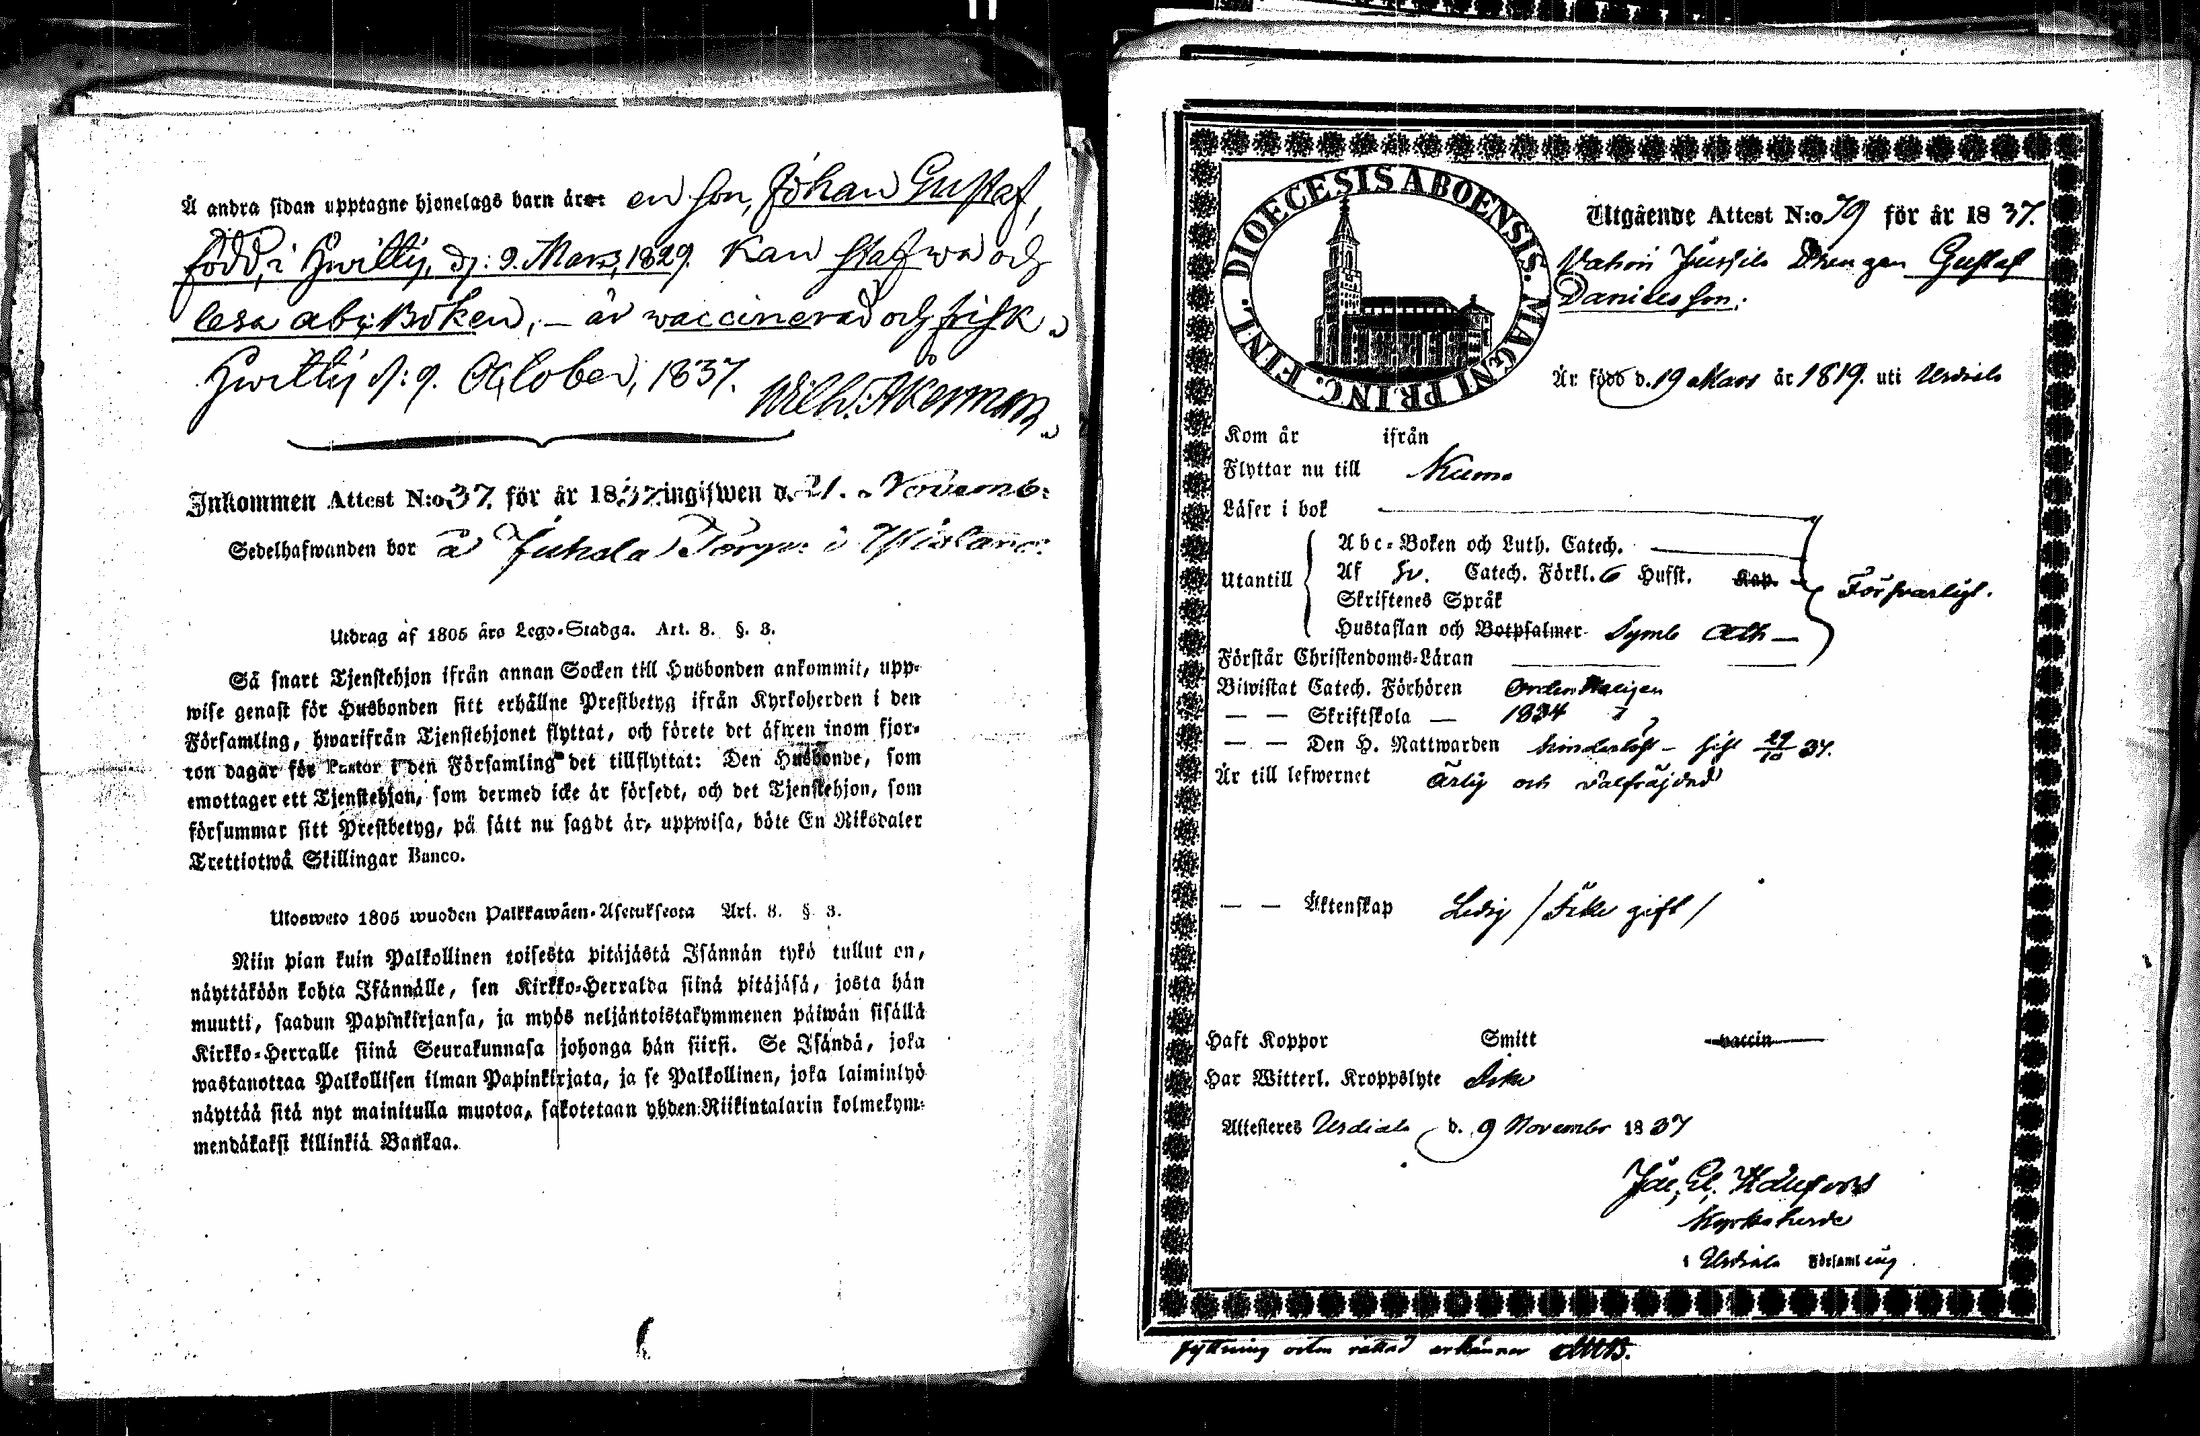 Å andra sidan upptagne hjonelags barn äro: en son, Johan Gustaf,
född, i Hwittis, d: 9. Mars, 1829. kan stafwa och
läsa abc Boken, – är waccinerad och frisk.
Hwittis d: 9. October, 1837. Wilh. Åkerman.
Inkommen Attest N:o 37. för år 1837 ingifwen d. 21. Novemb:
Sedelhafwanden bor å Juhala Torp: i
Utdrag af 1805 års Lego-Stadga. Art. 8. §. 3.
Så snart Tjenstehjon ifrån annan Socken till Husbonden ankommit, upp-
wise genast för Husbonden sitt erhållne Prestbetyg ifrån Kyrkoherden i den
Församling, hwarifrån Tjenstehjonet flyttat, och förete det äfwen inom fjor-
ton dagar för Pastor i den Församling det tillflyttat: Den Husbonde, som
emottager ett Tjenstehjon, som dermed icke är försedt, och det Tjenstehjon, som
försummar sitt Prestbetyg, på sätt nu sagdt är, uppwisa, böte En Riksdaler
Trettiotwå Skillingar Banco.
Ulosweto 1805 wuoden Palkkawäen-Asetuksesta Art. 8. § 3.
Niin pian kuin Palkollinen toisesta pitäjästä Isännän tykö tullut on,
näyttäköön kohta Isännälle, sen Kirkko-Herralda siinä pitäjäsä, josta hän
muutti, saadun Papinkirjansa, ja myös neljäntoistakymmenen päiwän sisällä
Kirkko-Herralle siinä Seurakunnasa johonga hän siirsi. Se Isändä, joka
wastanottaa Palkollisen ilman Papinkirjata, ja se Palkollinen, joka laiminlyö
näyttää sitä nyt mainitulla muotoa, sakotetaan yhden Riikintalarin kolmekym-
mendäkaksi killinkiä Bankaa.
DIOECESIS ABOENSIS. MAGNI PRINC. FINL.
Utgående Attest N:o 79 för år 1837.
Vahoi Jussila Drengen Gustaf
Danielsson.
Är född d. 19 Mars år 1819. uti Urdiala
Kom år ifrån
Flyttar nu till Kumo
Läser i bok
Abc-Boken och Luth. Catech.
Utantill Af Sv. Catech. Förkl. 6 Hufst. Kap. Försvarligt.
Skriftenes Språk
Hustaflan och Botpsalmer Symb Ath
Förstår Christendoms-Läran
Biwistat Catech. Förhören Ordenteligen
— — Skriftskola — 1834
— — Den H. Nattwarden hinderlöst – sist 29/10 37.
Är till lefwernet Ärlig och välfräjdad
— — Äktenskap Ledig / Icke gift /
Haft Koppor Smitt vaccin
Har Witterl. Kroppslyte Icke
Attesteres Urdiala d. 9 November 1837
Kyrkoherde
i Urdiala Församling
flyttnings orten rättad erkännes